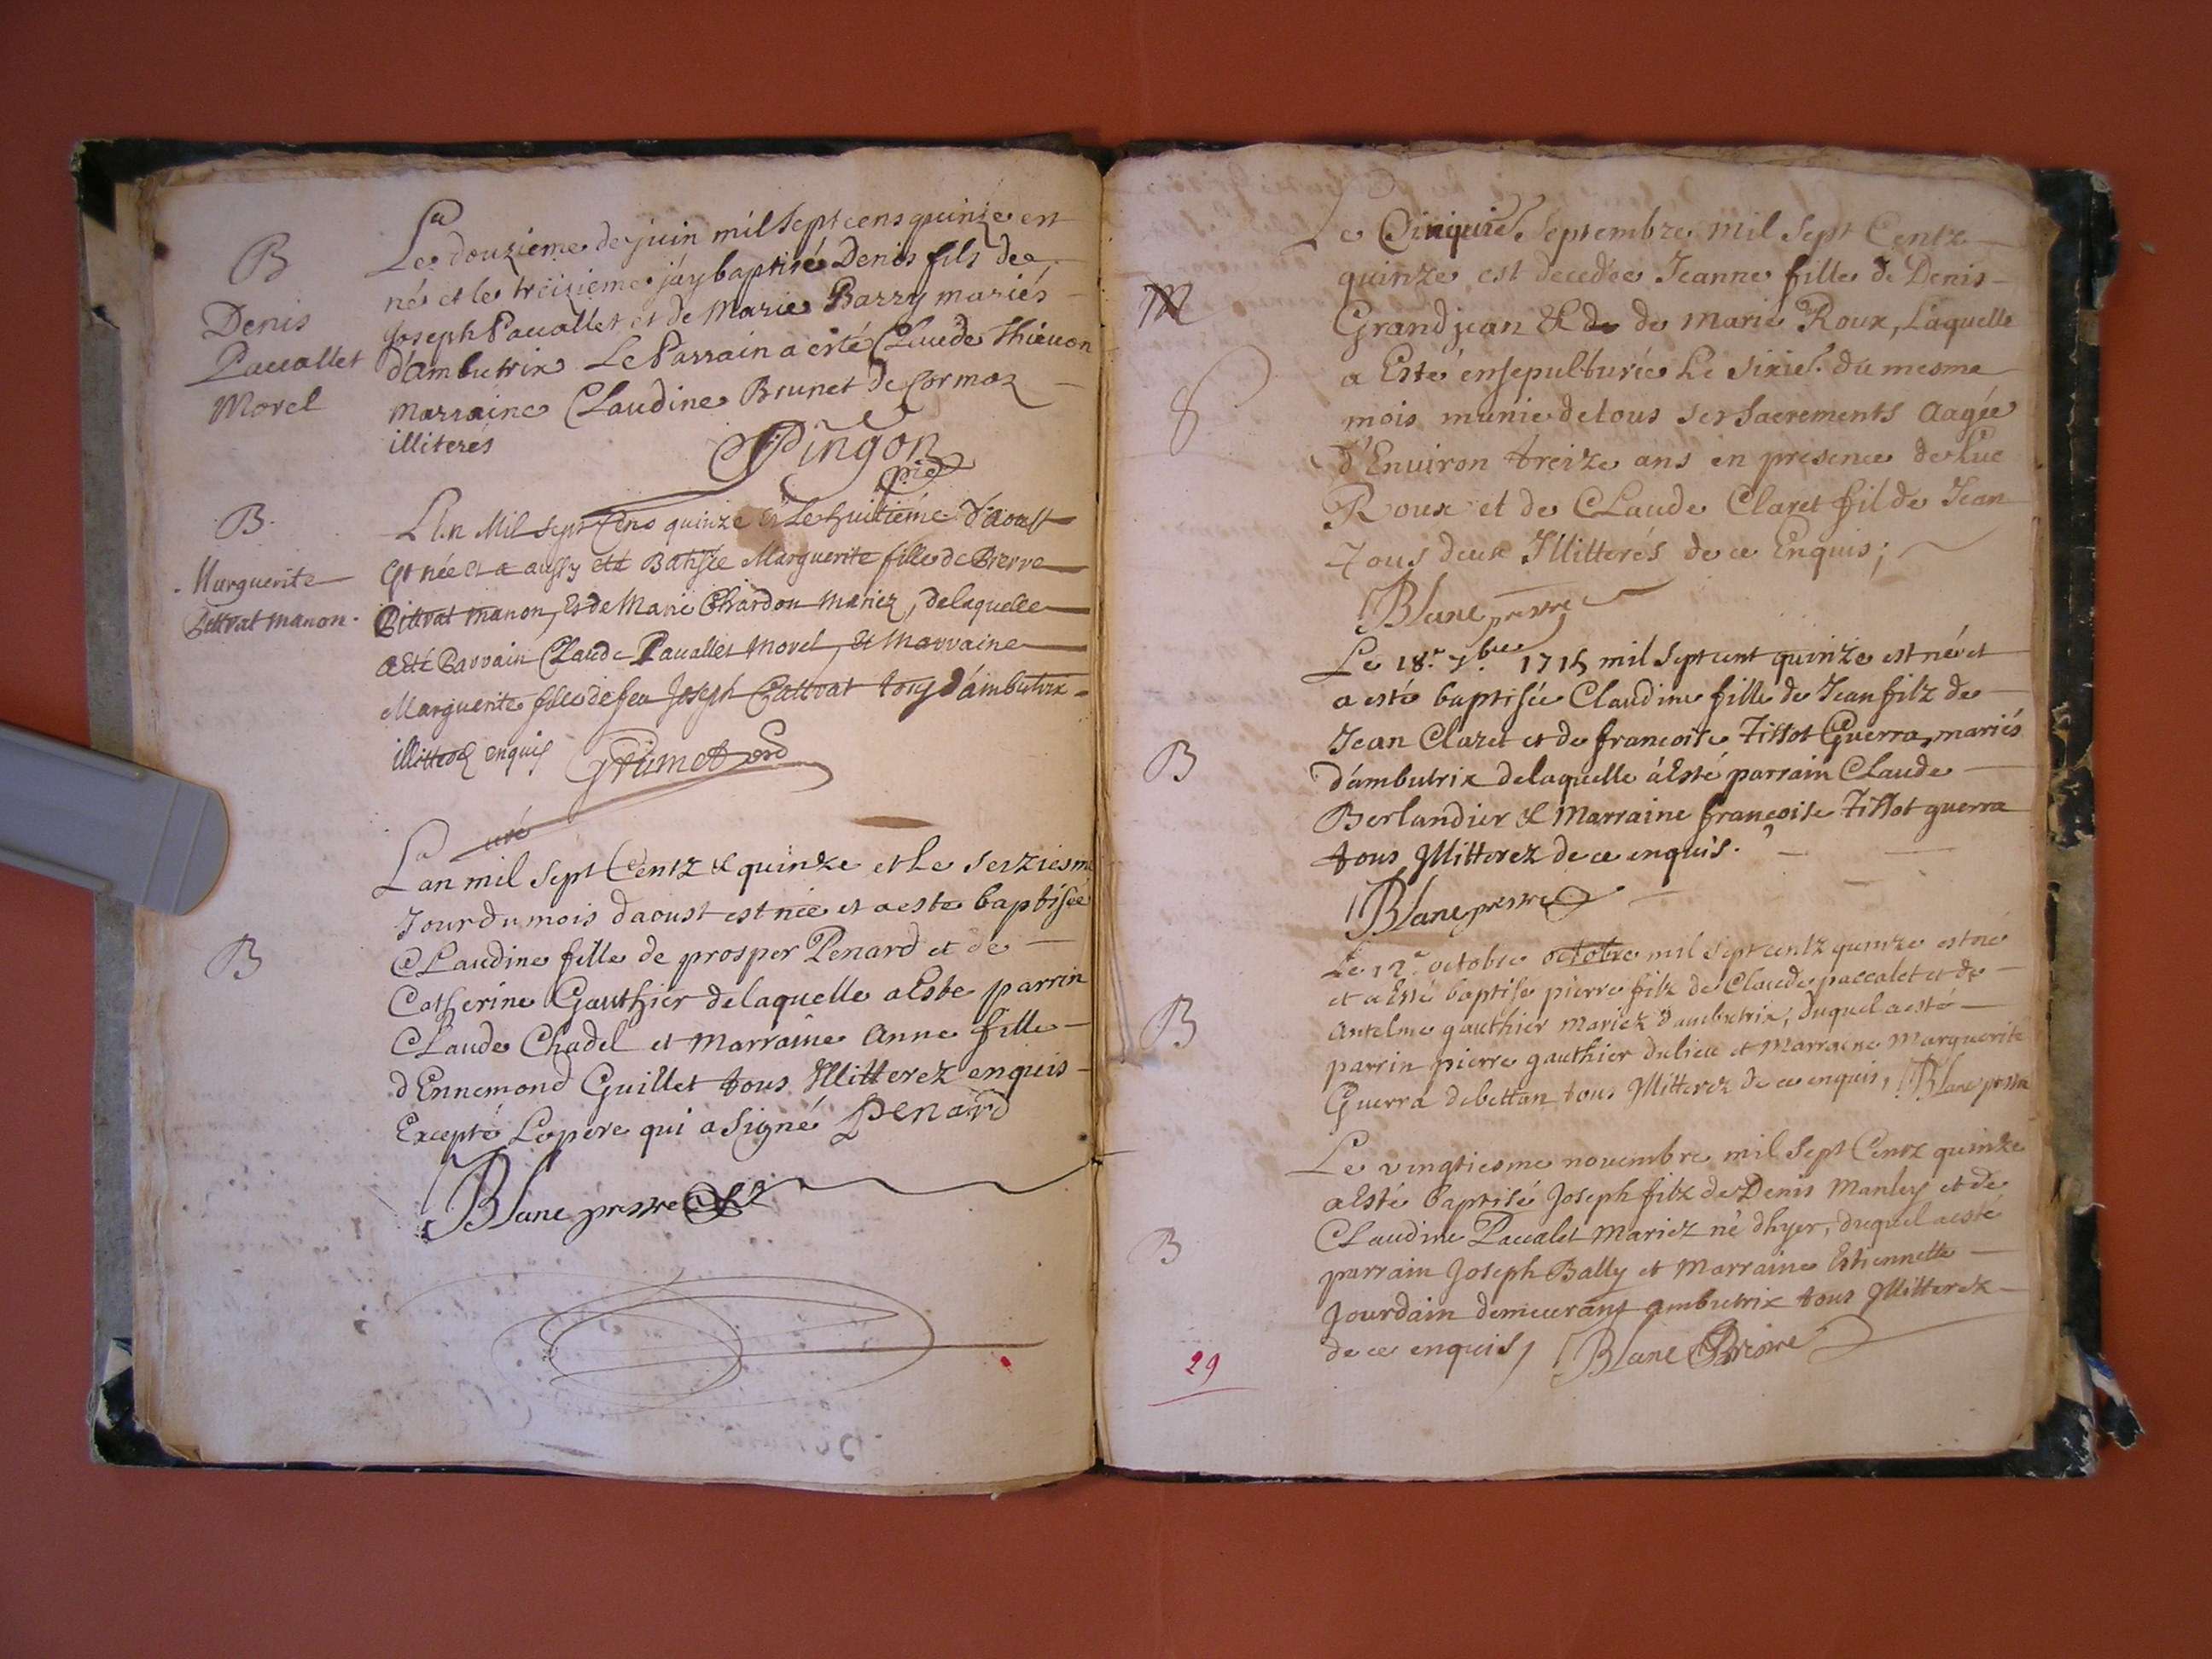 B
Denis
Paccallet
Morel
Le douzieme de juin mil sept cens quinze est
né et le treizieme j'ay baptisé Denis fils de
Joseph Paccallet et de Marie Barry mariés
d'ambutrix Le Parrain a esté Claude Thieuon
Marraine Claudine Brunet de Cormoz
illiterés
Pingon
B.
Marguerite
manon.
L'An Mil Sept Cens quinze et Le huitiéme d'Aoust
Est née et a aussy eté Batisée Marguerite fille de Pierre
manon, et de Marie Chardon Mariez, de laquelle
a Eté Parrain Claude Paccallet Morel, et Marraine
Marguerite fille de feu Joseph tous d'ambutrix
illitterés enquis Grumet
curé
B
L'an mil Sept Centz & quinze et Le Seiziesme
Jour du mois daoust est née et a esté baptisée
Claudine fille de prosper Penard et de
Catherine Gauthier de laquelle a Esté parrin
Claude Chadel et Marraine Anne fille
d'Ennemond Guillet tous Illitterez enquis
Excepté Le pere qui a signé Penard
Blanc prestre
M
8
Le Cinquie. Septembre mil Sept Centz
quinze est decedée Jeanne fille de Denis
Grandjean & de de Marie Roux, Laquelle
a Esté ensepulturée Le sixie. du mesme
mois munie de tous ses Sacrements Aagée
d'Enuiron treize ans en presence de Luc
Roux et de Claude Claret fil de Jean
Tous deux Illitterés de ce Enquis;
Blanc prestre
B
Le 18.e 7.bre 1715 mil sept cent quinze est né et
a esté baptisée Claudine fille de Jean filz de
Jean Claret et de francoise Tissot Guerra, mariés
d'ambutrix de laquelle à Esté parrain Claude
Berlandier & Marraine francoise Tissot guerra
tous Illitterez de ce enquis.
Blanc prestre
B
Le 12.e octobre octobre mil sept centz quinze est né
et a Esté baptisé pierre filz de Claude paccalet et de
Antelme gauthier Mariez d'ambutrix, duquel a esté
parrin pierre gauthier du lieu et Marraine Marguerite
Guerra de bettan tous Illitterez de ce enquis, Blanc prestre
B
Le vingtiesme nouembre mil Sept Centz quinze
a Esté baptisé Joseph filz de Denis Manley et de
Claudine Paccalet Mariez né d'hyer, duquel a esté
parrain Joseph Bally et Marraine Estiennette
Jourdain demeurans ambutrix tous Illitterez
de ce enquis, Blanc Prestre
29